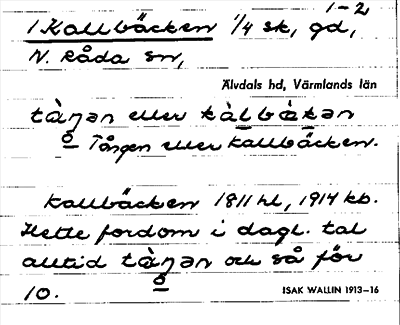 1-2
1 Kallbäcken 1/4 sk, gd,
N. Råda sn,
Älvdals hd, Värmlands län
tàŋən eller kàlbäkən
Tången eller Kallbäcken.
Kallbäcken 1811 hl, 1914 kb.
Hette fordom i dagl. tal
alltid tàŋən och så för
10.
ISAK WALLIN 1913-16